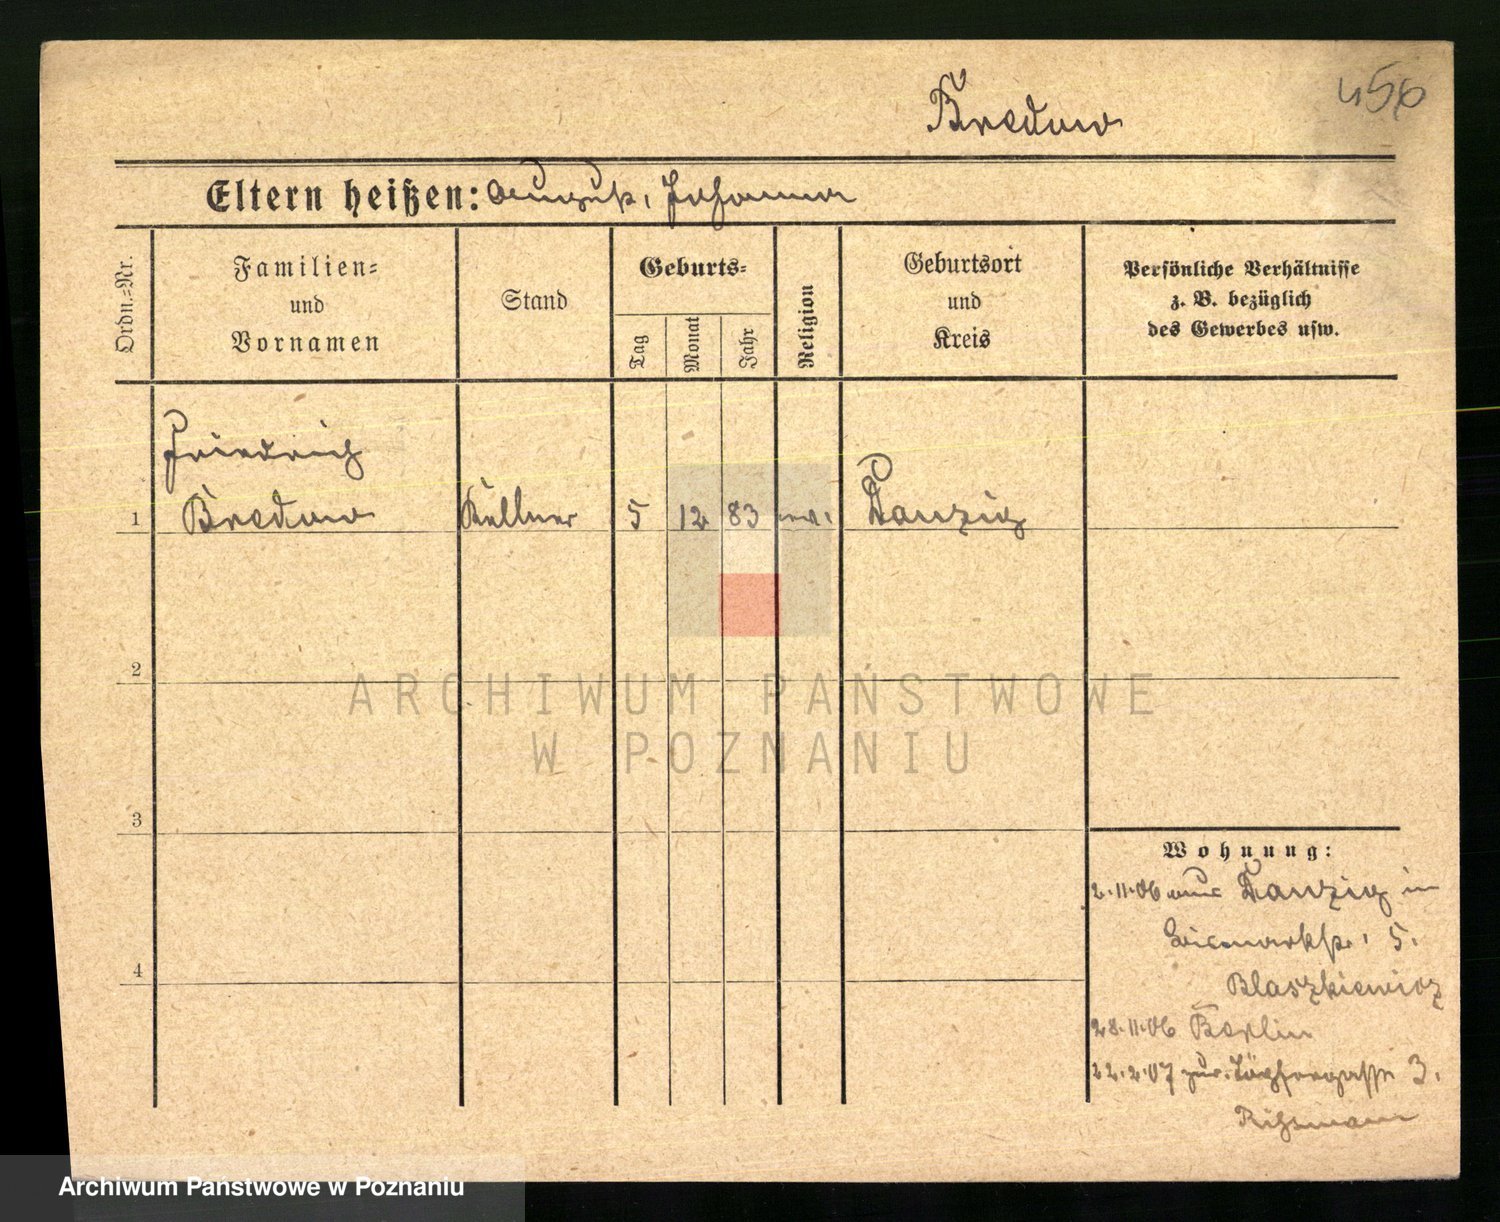 456
Bredow
Eltern heißen: August, Johanna
Ordn.-Nr.
Familien- und Vornamen
Stand
Geburts-
Tag
Monat
Jahr
Religion
Geburtsort und Kreis
Persönliche Verhältnisse
z. B. bezüglich
des Gewerbes usw.
Friedrich
1 Bredow Kellner 5 12 83 ev. Danzig
2
3
4
Wohnung:
2.11.06 aus Danzig in
Bismarckstr. 5.
Blaszkiewicz
28.11.06 Berlin
22.2.07 zur. 3.
ARCHIWUM PAŃSTWOWE
W POZNANIU
Archiwum Państwowe w Poznaniu